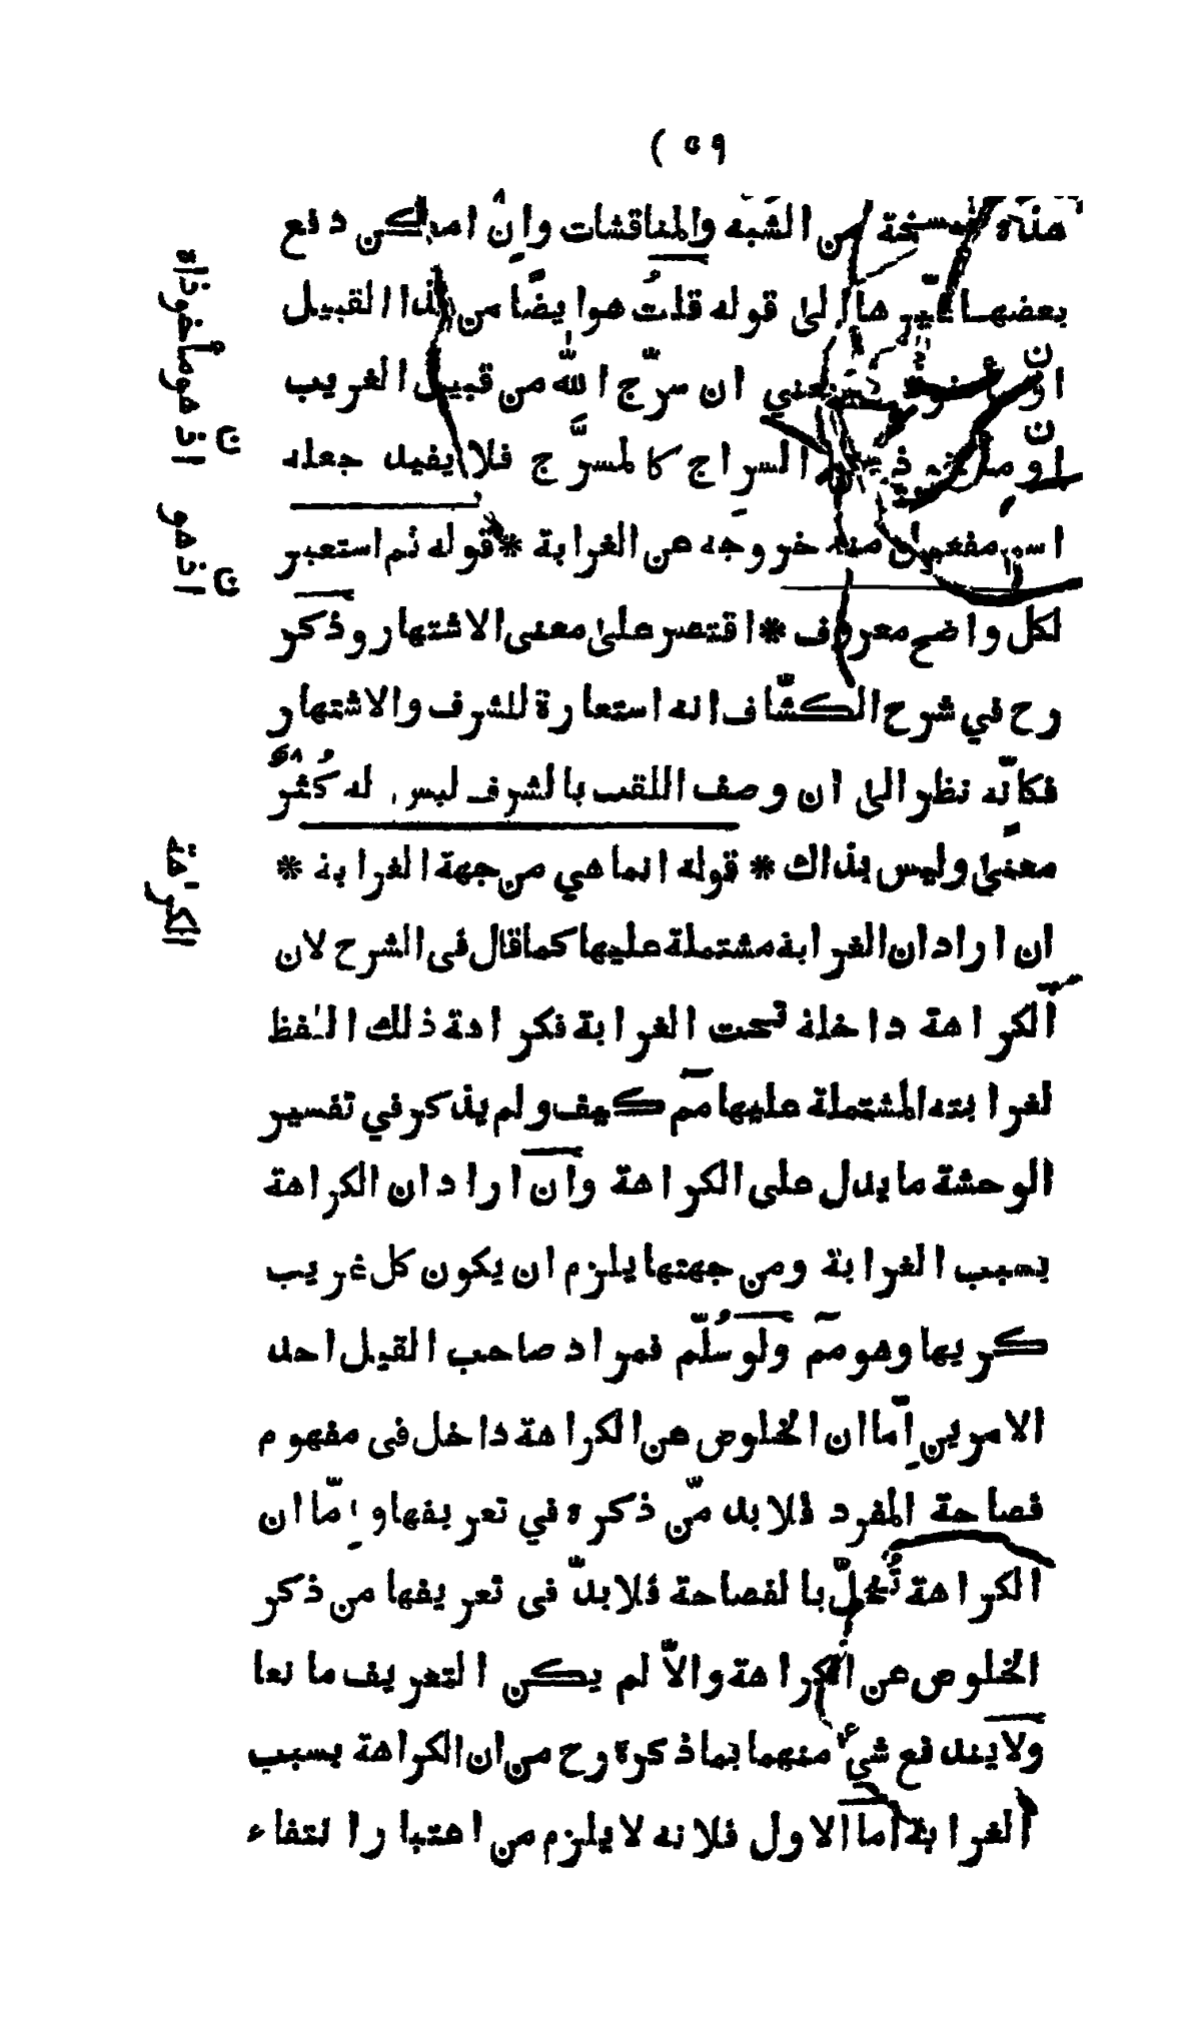 ( ٥٩
من الشبه والمناقشات وان امكن دفع
بعضها الى قوله قلت هو ايضًا من هذا القبيل
يعني ان سرّج الله من قبيل الغريب
السراج كالمسرَّج فلا يفيد جعله
اسم مفعول منه خروجه عن الغرابة * قوله ثم استعير
لكل واضح معروف * اقتصر على معنى الاشتهار وذكر
رح في شرح الكشّاف انه استعارة للشرف والاشتهار
فكانّه نظر الى ان وصف اللقب بالشرف ليس له كُثْرُ
معنىً وليس بذاك * قوله انما هي من جهة الغرابة *
ان اراد ان الغرابة مشتملة عليها كما قال فى الشرح لان
الكراهة داخلة تحت الغرابة فكراهة ذلك اللفظ
لغرابته المشتملة عليها مم كيف ولم يذكر في تفسير
الوحشة ما يدل على الكراهة وان اراد ان الكراهة
بسبب الغرابة ومن جهتها يلزم ان يكون كل غريب
كريها وهو مم ولو سُلّم فمراد صاحب القيل احد
الامرين اِمّا ان الخلوص عن الكراهة داخل فى مفهوم
فصاحة المفرد فلا بد مّن ذكره في تعريفها واِمّا ان
الكراهة تُخلّ بالفصاحة فلا بدّ فى تعريفها من ذكر
الخلوص عن الكراهة والاّ لم يكن التعريف مانعا
ولا يندفع شيء منهما بما ذكره رح من ان الكراهة بسبب
الغرابة اما الاول فلانه لا يلزم من اعتبار انتفاء
ن اذ هو مأخوذاه
ن اذ هو
الكراهة